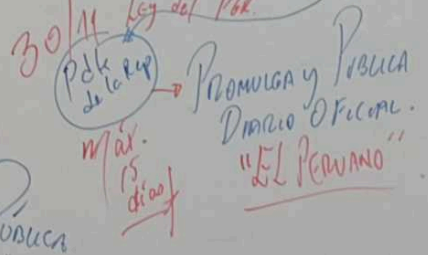 30/11 Ley del PGR.
Pdte
de la Rep
PROMULGA y PUBLICA
DIARIO OFICIAL.
"EL PERUANO"
Máx.
15
días
ÚBLICA